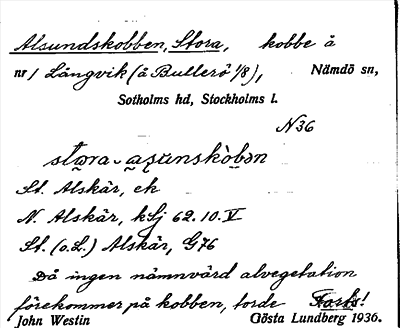 Alsundskobben, Stora, kobbe å
nr 1 Långvik (å Bullerö 1/8), Nämdö sn,
Sotholms hd, Stockholms l.
N36
St. Alskär, ek
N. Alskär, kSj 62.10.V
St. (o.L.) Alskär, G76
Då ingen nämnvärd alvegetation
förekommer på kobben, torde
John Westin Gösta Lundberg 1936.